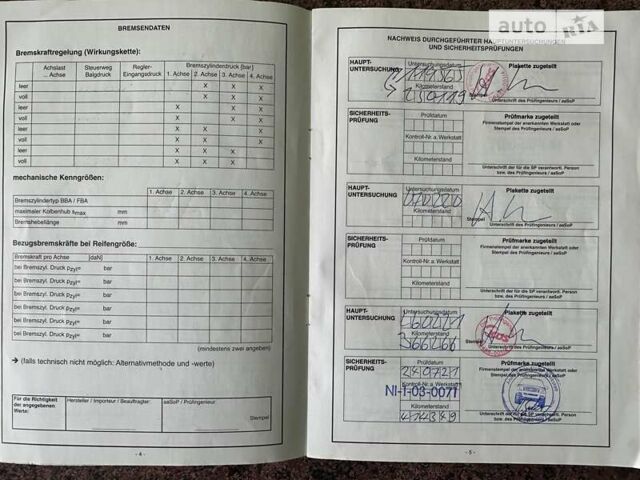 BREMSENDATEN
Bremskraftregelung (Wirkungskette):
Achslast ... Achse
Steuerweg Balgdruck
Regler-Eingangsdruck
Bremszylinderdruck [bar]
1. Achse 2. Achse 3. Achse 4. Achse
leer X X X
voll X X X
leer X X X
voll X X X
leer X X X
voll X X X
leer X X X
voll X X X
mechanische Kenngrößen:
1. Achse 2. Achse 3. Achse 4. Achse
Bremszylindertyp BBA / FBA
maximaler Kolbenhub fmax mm
Bremshebellänge mm
Bezugsbremskräfte bei Reifengröße:
Bremskraft pro Achse [daN] 1. Achse 2. Achse 3. Achse 4. Achse
bei Bremszyl. Druck pzyl= bar
bei Bremszyl. Druck pzyl= bar
bei Bremszyl. Druck pzyl= bar
bei Bremszyl. Druck pzyl= bar
bei Bremszyl. Druck pzyl= bar
bei Bremszyl. Druck pzyl= bar
(mindestens zwei angeben)
→ (falls technisch nicht möglich: Alternativmethode und -werte)
Für die Richtigkeit der angegebenen Werte:
Hersteller / Importeur / Beauftragter:
aaSoP / Prüfingenieur:
Stempel
- 4 -
auto RIA
NACHWEIS DURCHGEFÜHRTER HAUPTUNTERSUCHUNGEN
UND SICHERHEITSPRÜFUNGEN
HAUPT-UNTERSUCHUNG
Untersuchungsdatum
Kilometerstand
Plakette zugeteilt
Unterschrift des Prüfingenieurs / aaSoP
SICHERHEITS-PRÜFUNG
Prüfdatum
Kontroll-Nr. a. Werkstatt
Kilometerstand
Prüfmarke zugeteilt
Firmenstempel der anerkannten Werkstatt oder
Stempel des Prüfingenieurs / aaSoP
Unterschrift der für die SP verantwortl. Person
bzw. des Prüfingenieurs / aaSoP
HAUPT-UNTERSUCHUNG
Untersuchungsdatum
Kilometerstand
Stempel
Plakette zugeteilt
Unterschrift des Prüfingenieurs / aaSoP
SICHERHEITS-PRÜFUNG
Prüfdatum
Kontroll-Nr. a. Werkstatt
Kilometerstand
Prüfmarke zugeteilt
Firmenstempel der anerkannten Werkstatt oder
Stempel des Prüfingenieurs / aaSoP
Unterschrift der für die SP verantwortl. Person
bzw. des Prüfingenieurs / aaSoP
HAUPT-UNTERSUCHUNG
Untersuchungsdatum
060221
Kilometerstand
366266
Plakette zugeteilt
Unterschrift des Prüfingenieurs / aaSoP
SICHERHEITS-PRÜFUNG
Prüfdatum
240721
Kontroll-Nr. a. Werkstatt
NI-1-03-0071
Kilometerstand
Prüfmarke zugeteilt
Firmenstempel der anerkannten Werkstatt oder
Stempel des Prüfingenieurs / aaSoP
Unterschrift der für die SP verantwortl. Person
bzw. des Prüfingenieurs / aaSoP
- 5 -